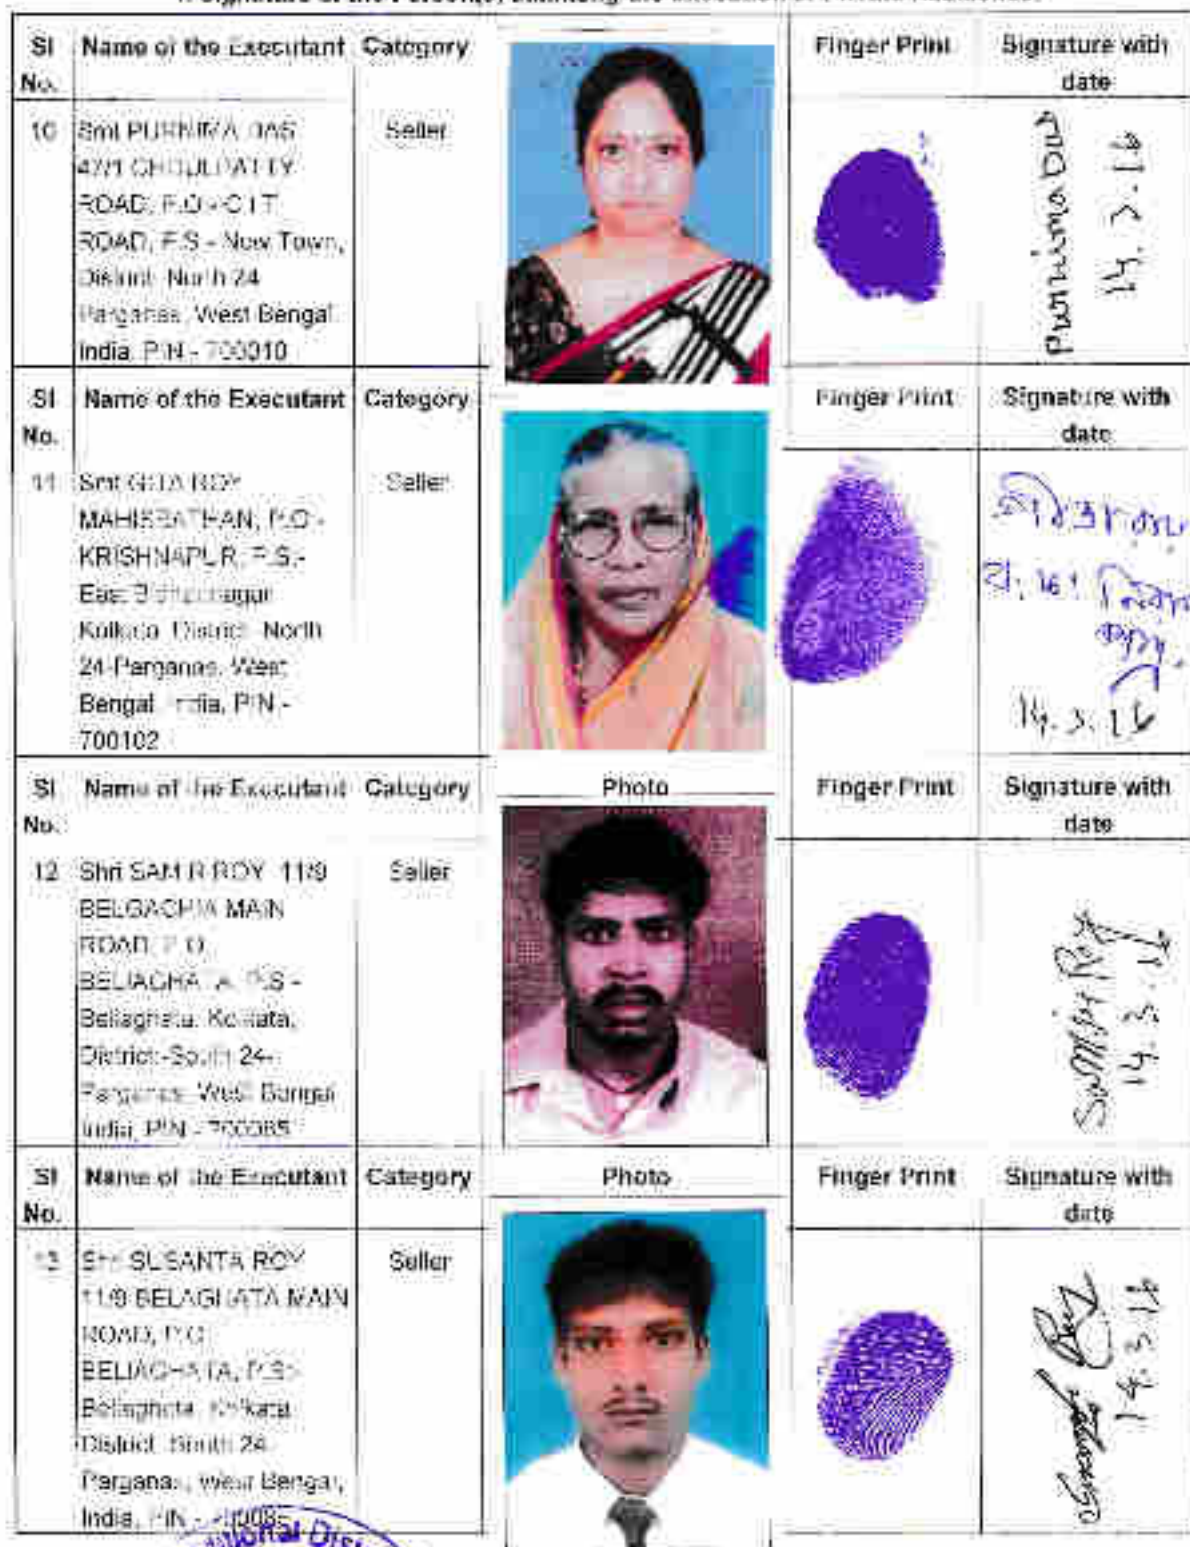 Signature of the Person(s) admitting the Execution
Sl No. Name of the Executant Category Finger Print Signature with date
10 Smt PURNIMA DAS Seller
47/1
ROAD, P.O.- C I T
ROAD, P.S.- New Town,
District:-North 24
Parganas, West Bengal,
India, PIN - 700010
Purnima Das
14.3.16
Sl No. Name of the Executant Category Finger Print Signature with date
11 Smt GITA ROY Seller
MAHISBATHAN, P.O.-
KRISHNAPUR, P.S.-
East Bidhannagar,
Kolkata, District:-North
24-Parganas, West
Bengal, India, PIN -
700102
14.3.16
Sl No. Name of the Executant Category Photo Finger Print Signature with date
12 Shri SAMIR ROY 11/9 Seller
MAIN
ROAD, P.O.
BELIAGHATA, P.S.-
Beliaghata, Kolkata,
District:-South 24-
Parganas, West Bengal,
India, PIN -
Samir Roy
14.3.16
Sl No. Name of the Executant Category Photo Finger Print Signature with date
13 Shri SUSANTA ROY Seller
11/9 MAIN
ROAD, P.O.
BELIAGHATA, P.S.-
Beliaghata, Kolkata,
District:-South 24-
Parganas, West Bengal,
India, PIN -
Susanta Roy
14.3.16